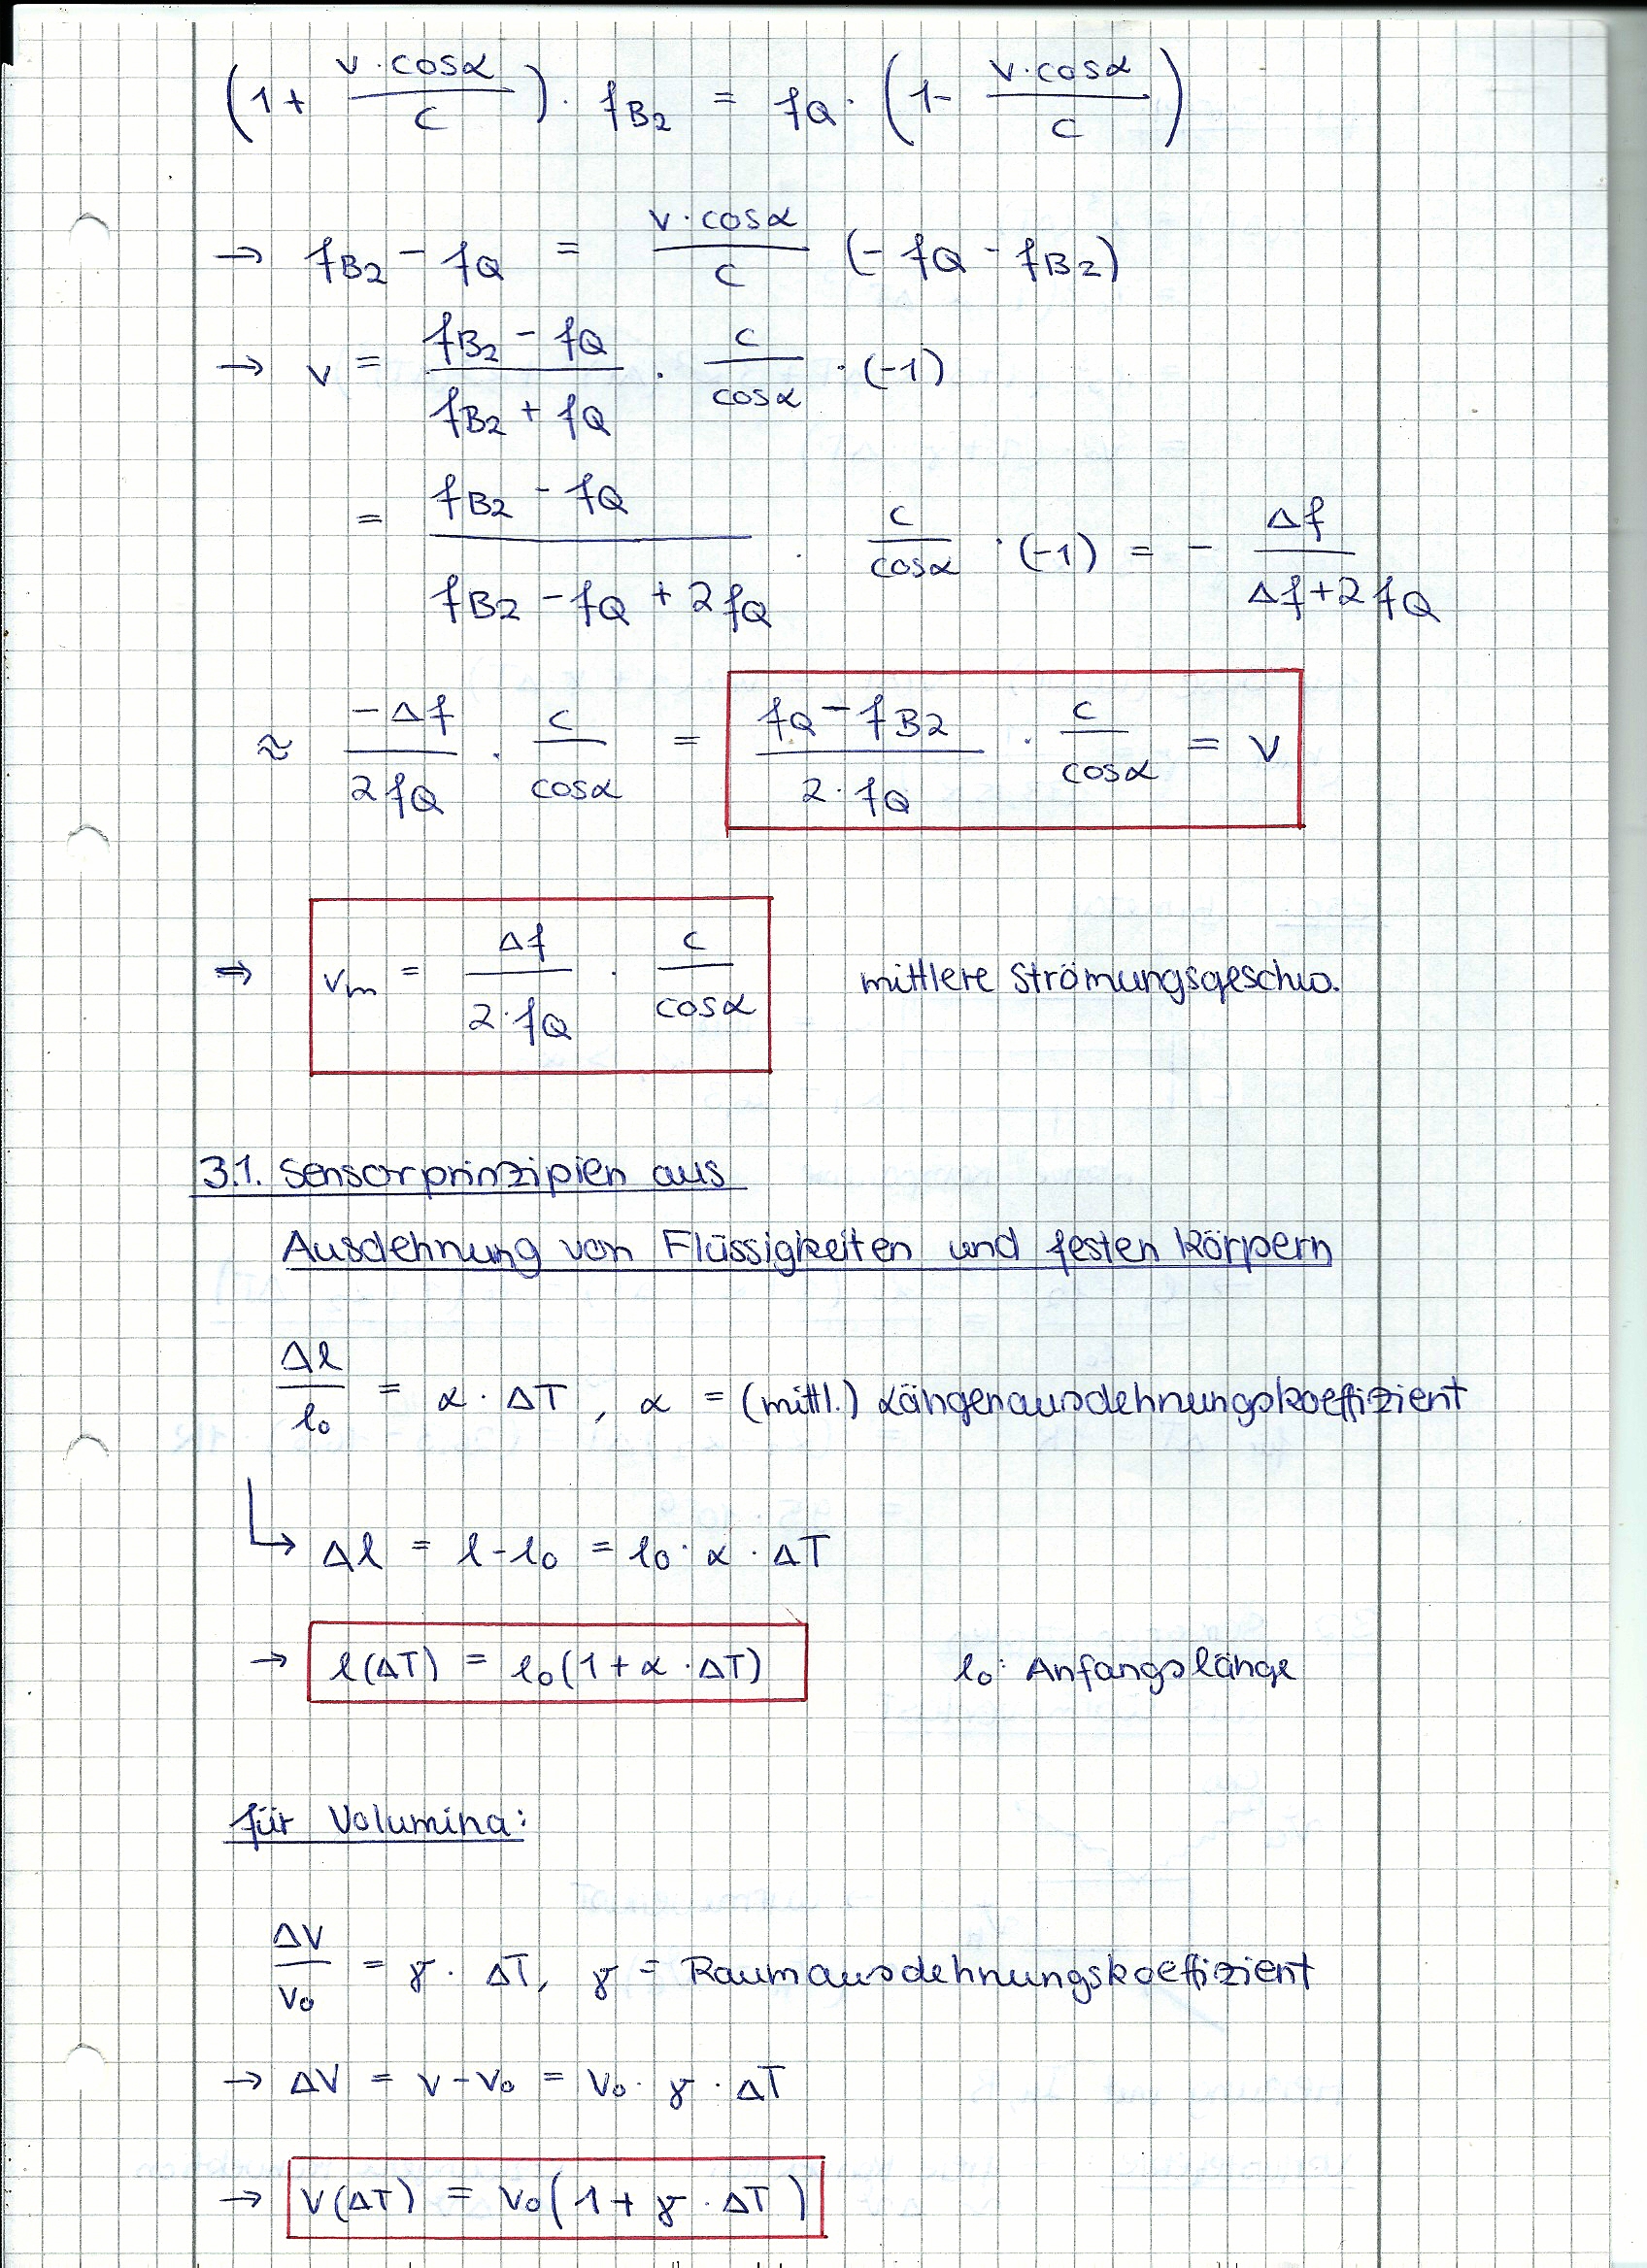 (1 + v·cosα/c) · fB2 = fQ · (1 - v·cosα/c)
→ fB2 - fQ = v·cosα/c (- fQ - fB2)
→ v = (fB2 - fQ)/(fB2 + fQ) · c/cosα · (-1)
= (fB2 - fQ)/(fB2 - fQ + 2fQ) · c/cosα · (-1) = - Δf/(Δf + 2fQ)
≈ -Δf/(2fQ) · c/cosα = (fQ - fB2)/(2·fQ) · c/cosα = v
⇒ vm = Δf/(2·fQ) · c/cosα mittlere Strömungsgeschw.
3.1. Sensorprinzipien aus
Ausdehnung von Flüssigkeiten und festen Körpern
Δl/l0 = α · ΔT, α = (mittl.) Längenausdehnungskoeffizient
↳ Δl = l - l0 = l0 · α · ΔT
→ l(ΔT) = l0(1 + α · ΔT) l0: Anfangslänge
für Volumina:
ΔV/V0 = γ · ΔT, γ = Raumausdehnungskoeffizient
→ ΔV = V - V0 = V0 · γ · ΔT
→ V(ΔT) = V0(1 + γ · ΔT)